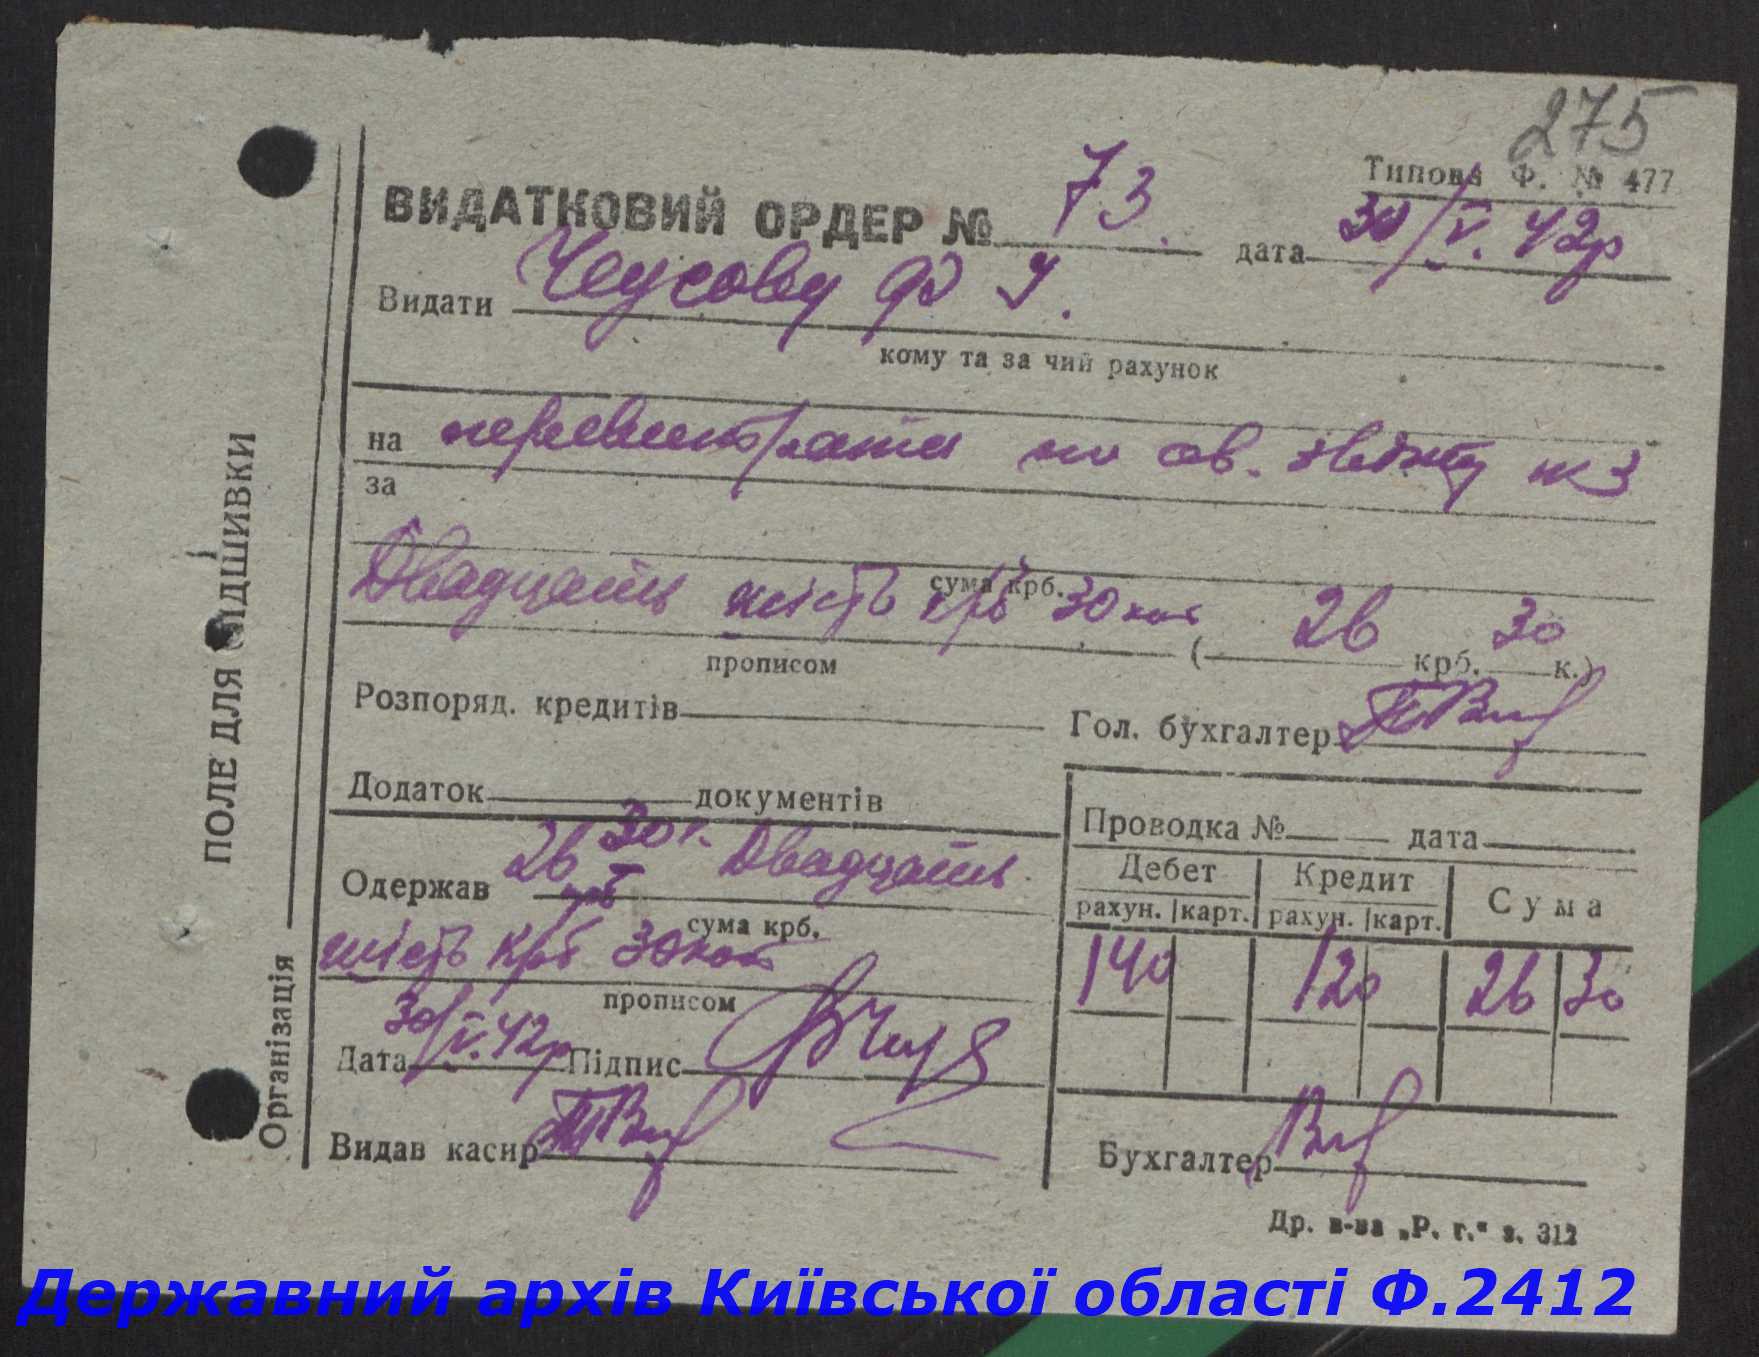 275
Типова Ф. № 477
ВИДАТКОВИЙ ОРДЕР № 73. дата 30/V. 42р
Видати Чеусову
кому та за чий рахунок
на по ав. звіту №3
за
сума крб.
Двадцать шість крб 30 коп ( 26 крб. 30 к.)
прописом
Розпоряд. кредитів
Гол. бухгалтер
Додаток документів
Проводка № дата
Дебет Кредит Сума
рахун. карт. рахун. карт.
140 120 26 30
Одержав 26 крб 30 к. Двадцать
сума крб.
шість крб 30 коп
прописом
Дата 30/V. 42р Підпис
Видав касир
Бухгалтер
Др. в-ва „Р. г.“ з. 312
ПОЛЕ ДЛЯ ПІДШИВКИ
Організація
Державний архів Київської області Ф.2412